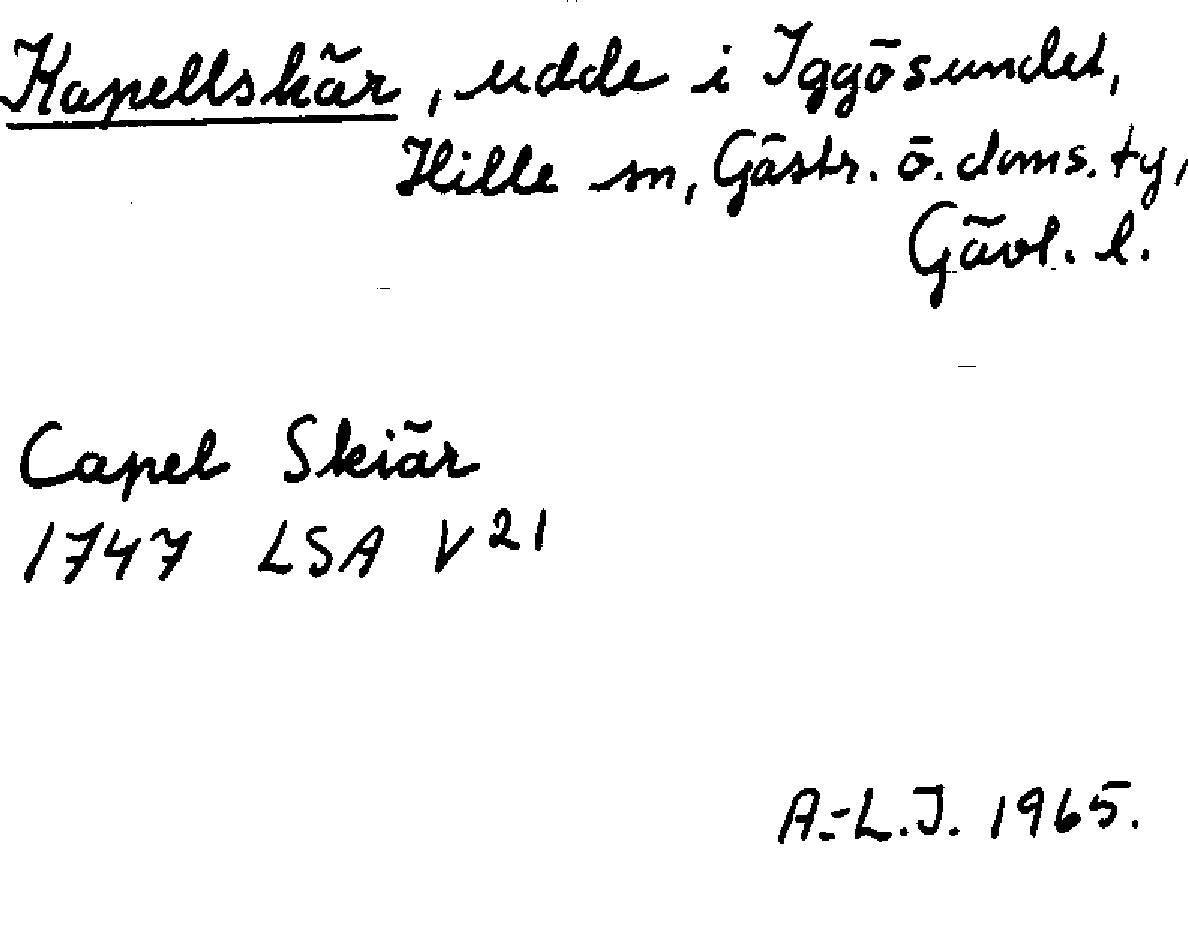 Kapellskär, udde i Iggösundet,
Hille sn, Gästr. ö. doms. ty,
Gävl. l.
Capel Skiär
1747 LSA V21
A.-L.J. 1965.